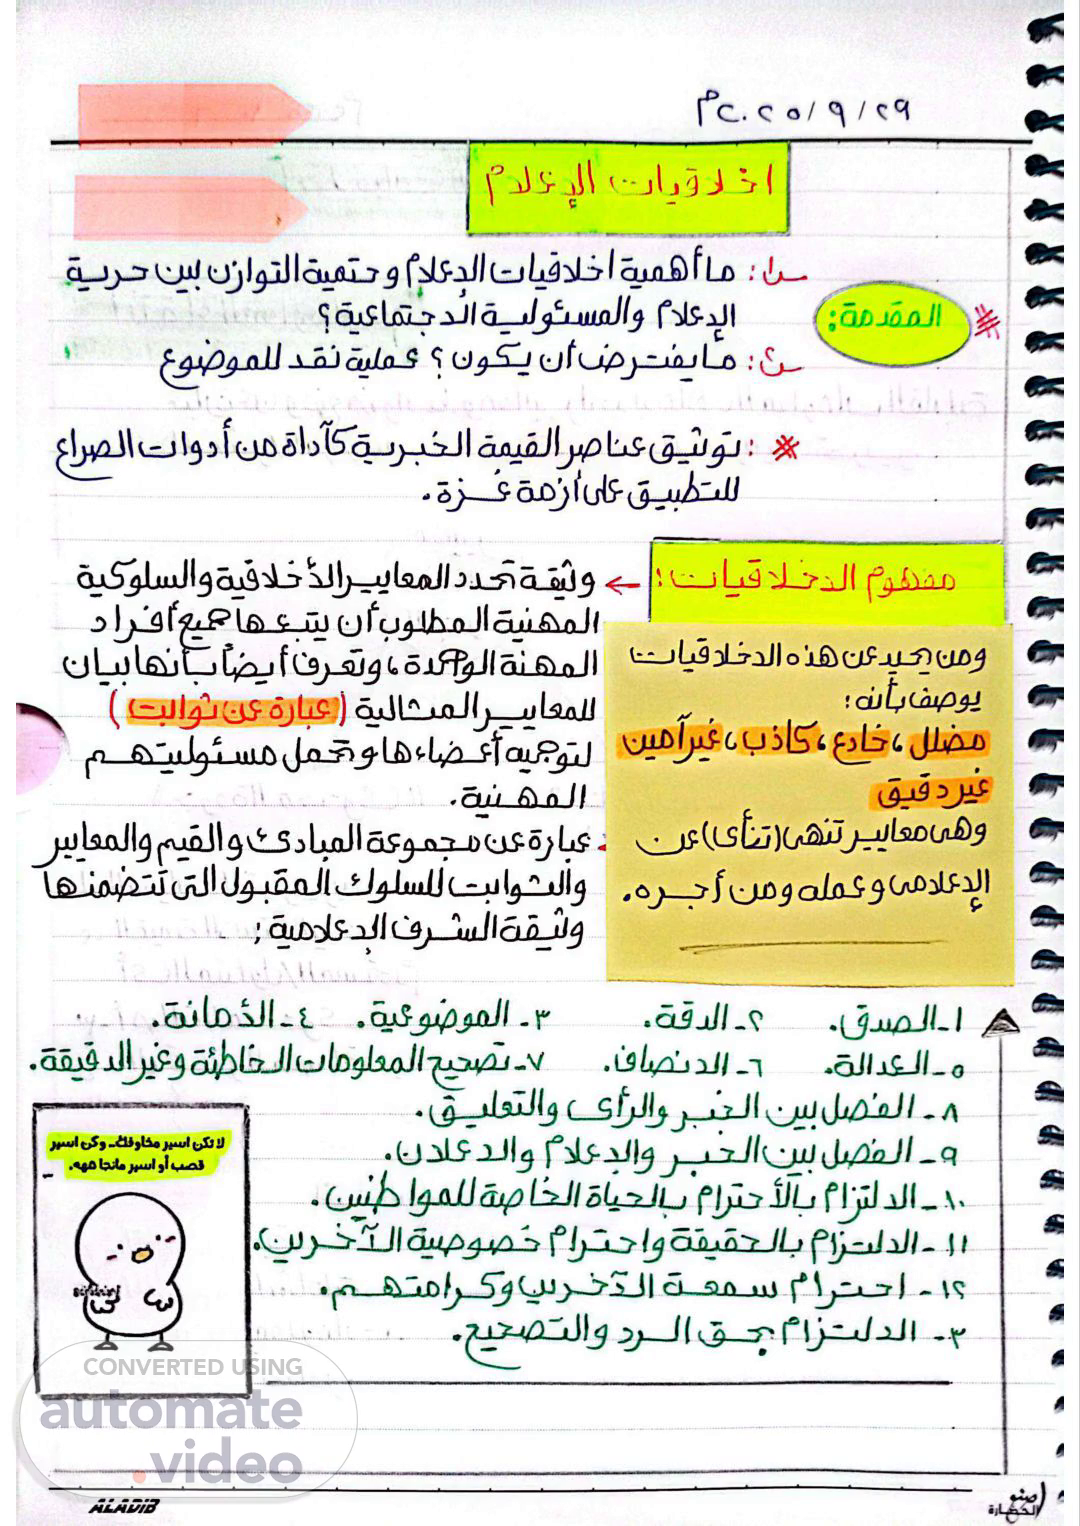 ٢٩/٩/٢٠٢٥م
اخلاقيات الإعلام
المقدمة:
س١: ما أهمية اخلاقيات الإعلام وحتمية التوازن بين حرية
الإعلام والمسئولية الاجتماعية؟
س٢: ما يفترض أن يكون؟ عملية نقد للموضوع
* : توثيق عناصر القيمة الخبرية كآداة من أدوات الصراع
للتطبيق على أزمة غزة.
مفهوم الاخلاقيات:
← وثيقة تحدد المعايير الأخلاقية والسلوكية
المهنية المطلوب أن يتبعها جميع أفراد
المهنة الواحدة، وتعرف أيضاً بأنها بيان
للمعايير المثالية (عبارة عن ثوابت)
لتوجيه أعضاءها وتحمل مسئوليتهم
المهنية.
عبارة عن مجموعة المبادئ والقيم والمعايير
والثوابت للسلوك المقبول التى تتضمنها
وثيقة الشرف الإعلامية:
ومن يحيد عن هذه الاخلاقيات
يوصف بأنه:
مضلل، خادع، كاذب، غير آمين
غير دقيق
وهى معايير تنهى (تنأى) عن
الإعلامى وعمله ومن أجره.
١- الصدق. ٢- الدقة. ٣- الموضوعية. ٤- الأمانة.
٥- العدالة. ٦- الانصاف. ٧- تصحيح المعلومات الخاطئة وغير الدقيقة.
٨- الفصل بين الخبر والرأى والتعليق.
٩- الفصل بين الخبر والإعلام والاعلان.
١٠- الالتزام بالأحترام بالحياة الخاصة للمواطنين.
١١- الالتزام بالحقيقة واحترام خصوصية الآخرين.
١٢- احترام سمعة الآخرين وكرامتهم.
٣- الالتزام بحق الرد والتصحيح.
لا تكن اسير مخاوفك.. وكن اسير
قصب أو اسير مانجا مهه.
CONVERTED USING
automate
.video
ALADIB
اصنع
الحضارة